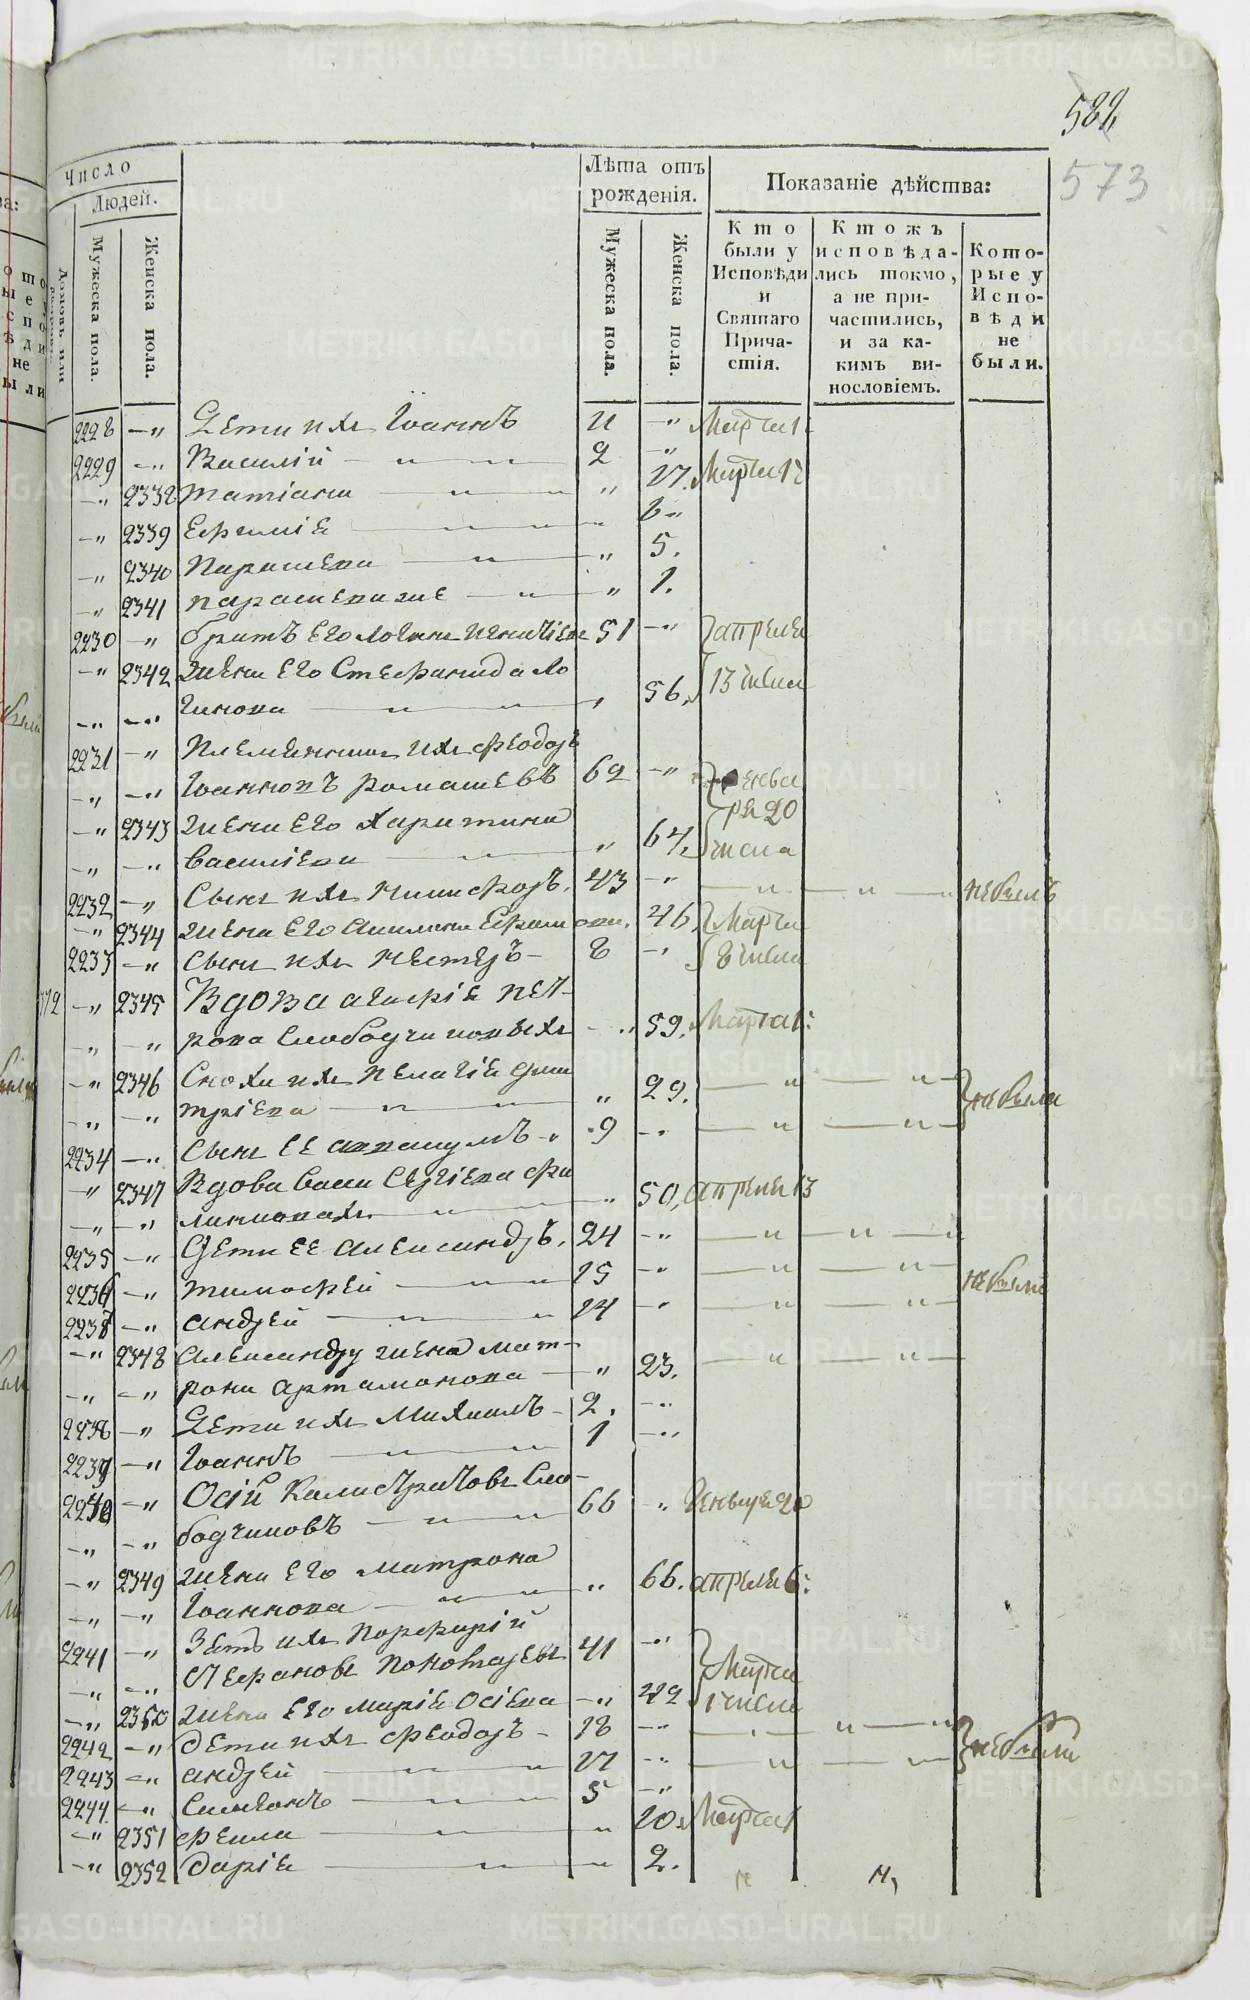 582
573
Число
Людей.
Лѣта отъ
рожденія.
Показаніе дѣйства:
Домовъ или
Мужеска пола.
Женска пола.
Мужеска пола.
Женска пола.
Кто
были у
Исповѣди
и
Святаго
Прича-
стія.
Ктожъ
исповѣда-
лись токмо,
а не при-
частились,
и за ка-
кимъ ви-
нословіемъ.
Кото-
рые у
Испо-
вѣди
не
были.
2228 — " Дети ихъ Іоаннъ — " Марта
2229 — " Василій — " — " — 2 — "
— " 2338 татіана — " — " — " 17. Марта
— " 2339 Ефимія — " — " 6 "
— " 2340 Параскева — " — " 5.
— " 2341 параскева же — " — " 1.
2230 — " братъ его 51 — " апреля
— " 2342 жена его Стефанида Ло
гинова — " — " 56. 13 числа
2231 — " Племянникъ ихъ феодоръ
— " — " Іоанновъ ромашевъ 62 — " генва
— " 2343 жена его Харитина ря 20
— " — " василіева — " — " 64. числа
2232 — " Сынъ ихъ Никифоръ. 43 — " — " — " — " небылъ
— " 2344 жена его акилина Ефимова. 46. Марта
2233 — " сынъ ихъ Нестеръ — 8 — " 8 числа
572 — " 2345 Вдова агафія пет-
— " — " рова Слободчиковыхъ — " 59. Марта
— " 2346 Сноха ихъ пелагія дми
— " — " тріева — " — " 29. — " — " небыли
2234 — " Сынъ ее аввакумъ — " 9 — " — " — "
— " 2347 Вдова Васса Сергіева фи
— " — " липповахъ — " — " 50. апреля 13
2235 — " Дети ее александръ. 24 — " — " — " — "
2236 — " тимофей — " — " 15 — " — " — " небыли
2237 — " андрей — " — " 14 — " — " — "
— " 2348 Александру жена мат-
— " — " рона артамонова — " 23. — " — "
2238 — " Дети ихъ Михаилъ — 2. — "
2239 — " Іоаннъ — " — " 1 — "
2240 — " Осій Калистратовъ Сло-
— " — " бодчиковъ — " — " 66 — " Генваря 20
— " 2349 жена его матрона
— " — " Іоаннова — " — " 66. апреля 6:
2241 — " Зять ихъ порфирій
— " — " Стефановъ 41 — " Марта
— " 2350 жена его марія Осіева — " 42 1 числа
2242 — " дети ихъ феодоръ — 18 — " — " — " небыли
2243 — " андрей — " — " 17 — " — " — "
2244. — " Симеонъ — " — " 5 — "
— " 2351 фекла — " — " 10. Марта
— " 2352 дарія — " — " 2.
METRIKI.GASO-URAL.RU